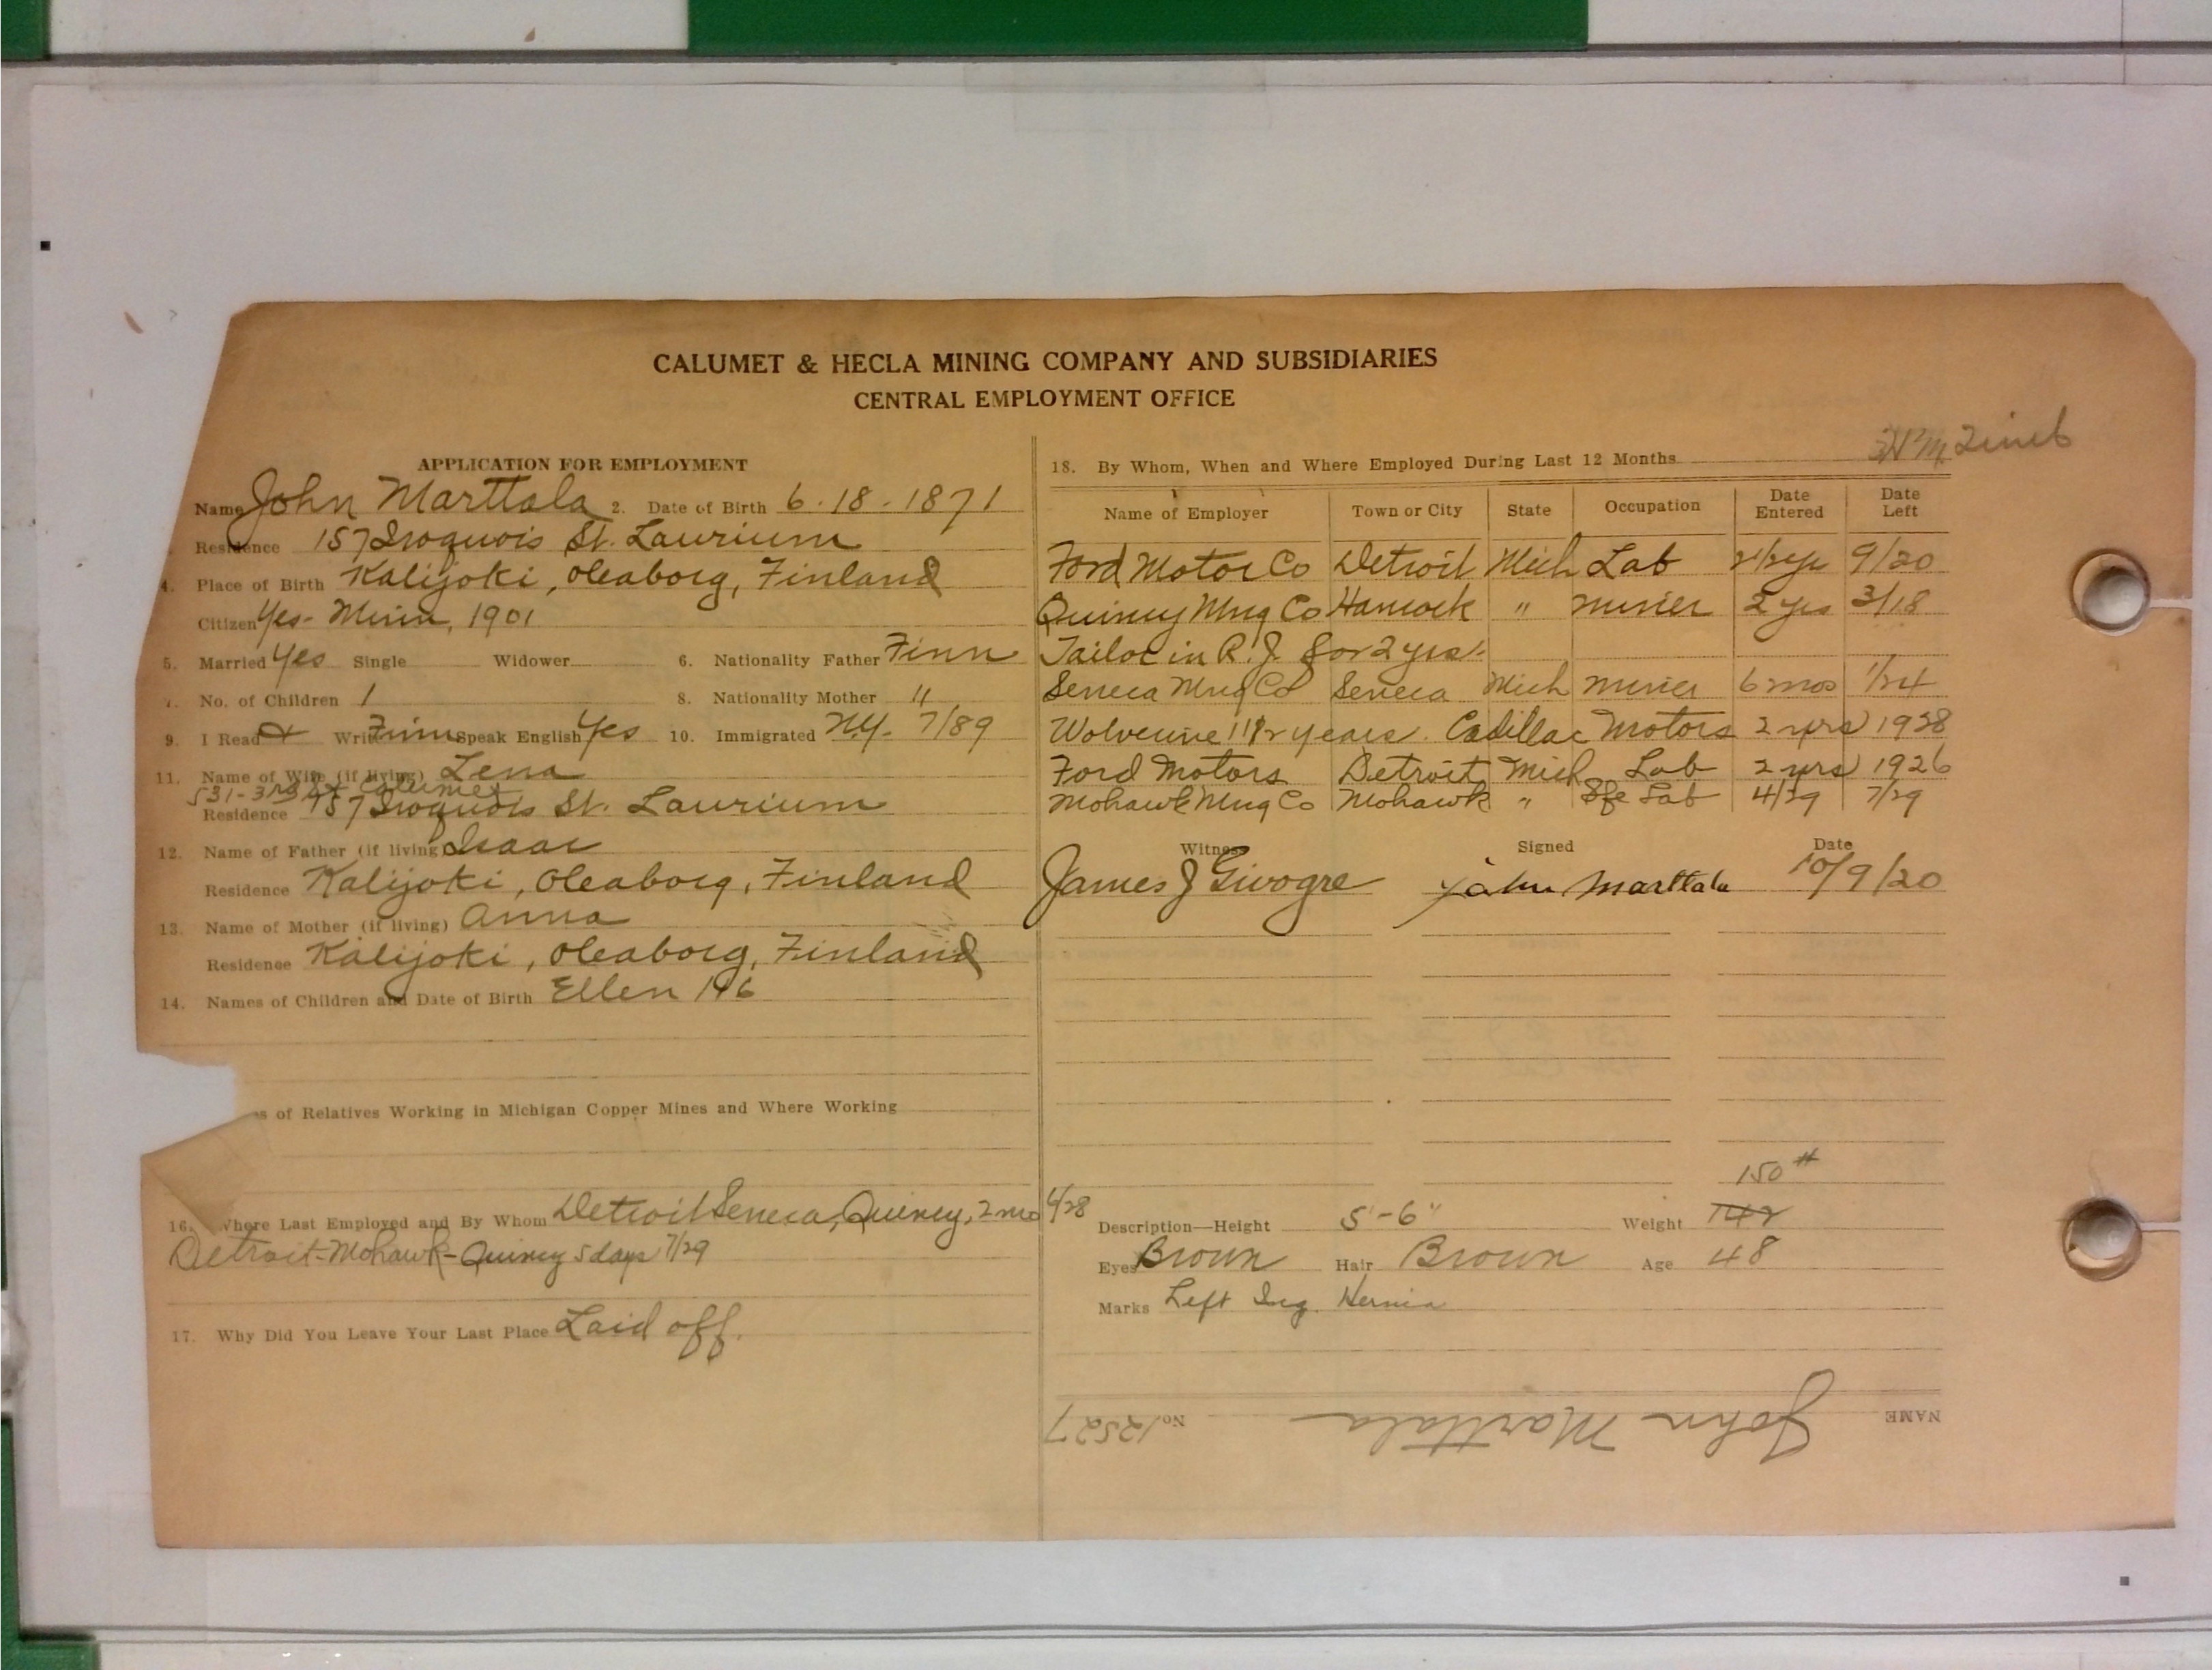 CALUMET & HECLA MINING COMPANY AND SUBSIDIARIES
CENTRAL EMPLOYMENT OFFICE
APPLICATION FOR EMPLOYMENT
Name John Marttala 2. Date of Birth 6-18-1871
Residence 157 Iroquois St. Laurium
4. Place of Birth Kalijoki, Oleaborg, Finland
Citizen Yes- Minn, 1901
5. Married Yes Single Widower 6. Nationality Father Finn
7. No. of Children 1 8. Nationality Mother "
9. I Read & Write Finn Speak English Yes 10. Immigrated N.Y. 7/89
11. Name of Wife (if living) Lena
531-3rd St Calumet
Residence 157 Iroquois St. Laurium
12. Name of Father (if living) Isaac
Residence Kalijoki, Oleaborg, Finland
13. Name of Mother (if living) Anna
Residence Kalijoki, Oleaborg, Finland
14. Names of Children and Date of Birth Ellen
s of Relatives Working in Michigan Copper Mines and Where Working
16. Where Last Employed and By Whom Detroit Seneca, Quincy, 2 mo 4/28
Detroit-Mohawk-Quincy 5 days 7/29
17. Why Did You Leave Your Last Place Laid off.
18. By Whom, When and Where Employed During Last 12 Months
Name of Employer Town or City State Occupation Date Entered Date Left
Ford Motor Co Detroit Mich Lab 2 1/2 yr 9/20
Quincy Mng Co Hancock " miner 2 yrs 3/18
Tailor in R.J. for 2 yrs.
Seneca Mng Co Seneca Mich miner 6 mos 1/24
Wolverine 1 1/2 years. Cadillac Motors 2 yrs 1928
Ford Motors Detroit Mich Lab 2 yrs 1926
Mohawk Mng Co Mohawk " Sfe Lab 4/29 7/29
Witness Signed Date
James J Givogre John Marttala 10/9/20
150#
Description—Height 5'-6" Weight 142
Eyes Brown Hair Brown Age 48
Marks Left Ing. Hernia
NAME John Marttala No. 12527